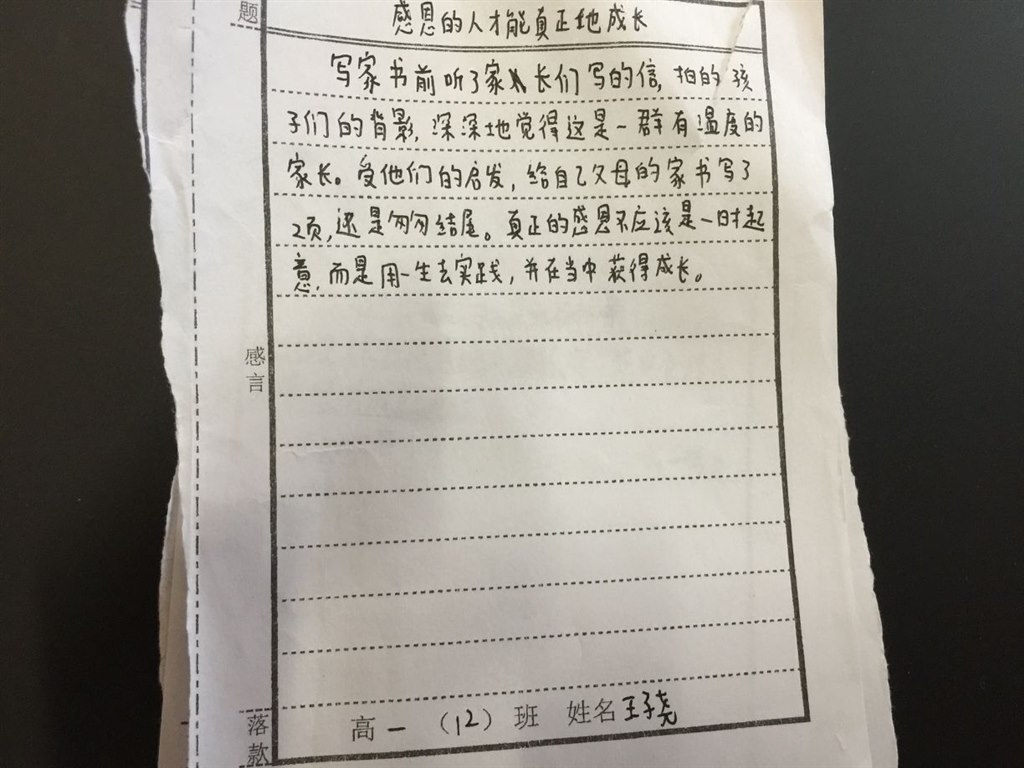 题 感恩的人才能真正地成长
写家书前听了家长们写的信,拍的孩
子们的背影,深深地觉得这是一群有温度的
家长。受他们的启发,给自己父母的家书写了
2页,还是匆匆结尾。真正的感恩不应该是一时起
意,而是用一生去实践,并在当中获得成长。
感言
落款 高一(12)班 姓名王子尧